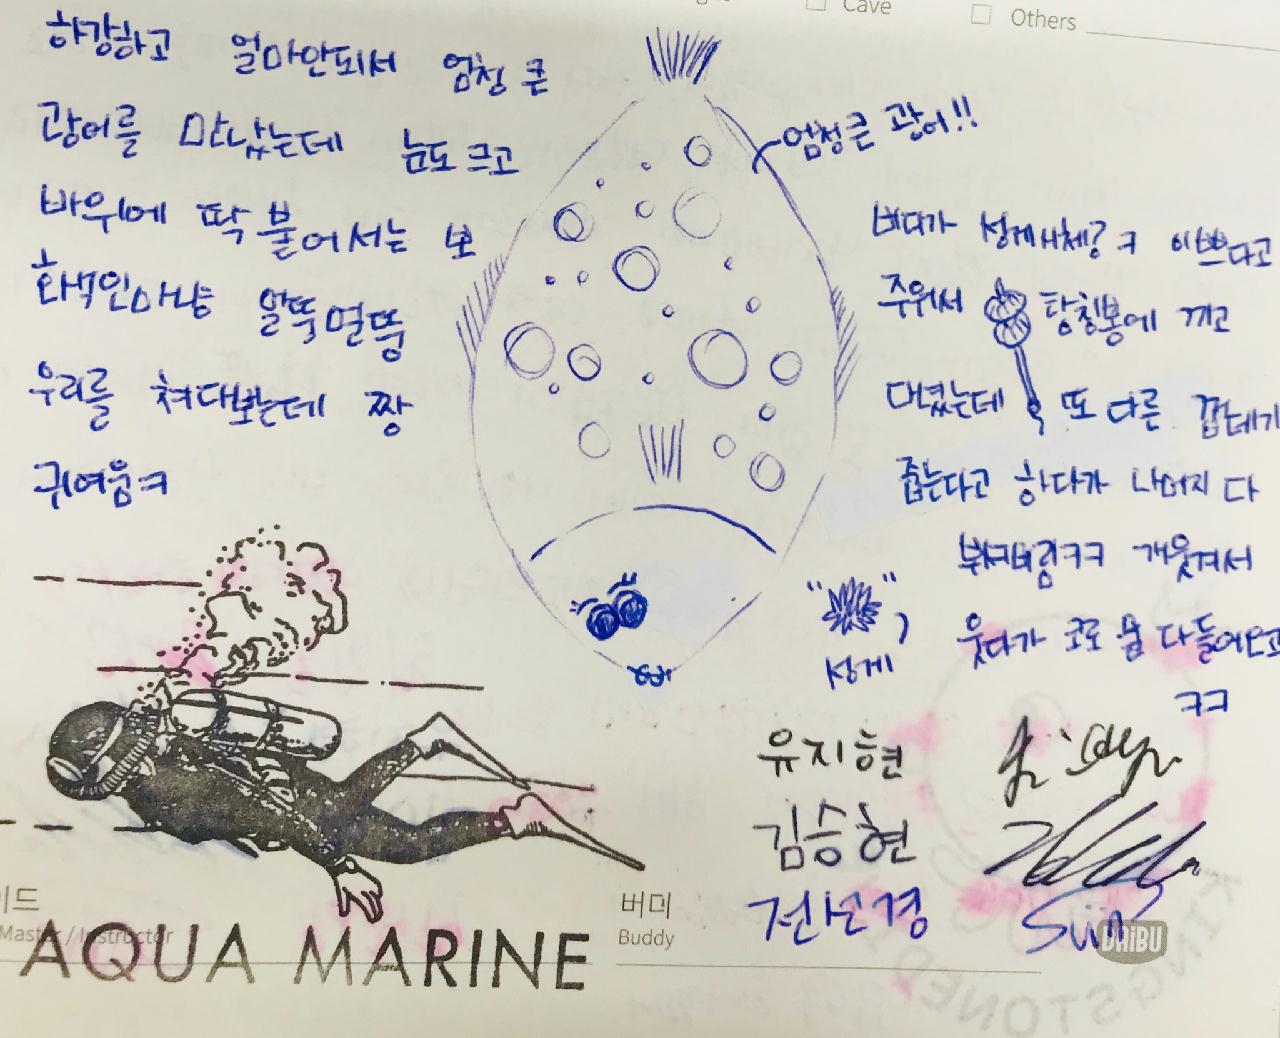 Cave
Others
하강하고 얼마안되서 엄청 큰
광어를 만났는데 눈도 크고
바위에 딱 붙어서는 보
호색인마냥 얼뚝덜뚱
우리를 쳐다보는데 짱
귀여움ㅋ
엄청큰 광어!!
버디가 성게시체ㅋ 이쁘다고
주워서 탐침봉에 끼고
다녔는데 또 다른 껍데기
줍는다고 하다가 나머지 다
뿌셔버림ㅋㅋ 개웃겨서
웃다가 코로 물 다들어오고
ㅋㅋ
" "
성게
유지현
김승현
전선경
Sun
이드
Master / Instructor
버디
Buddy
AQUA MARINE
DAiBU
KINGSTONE